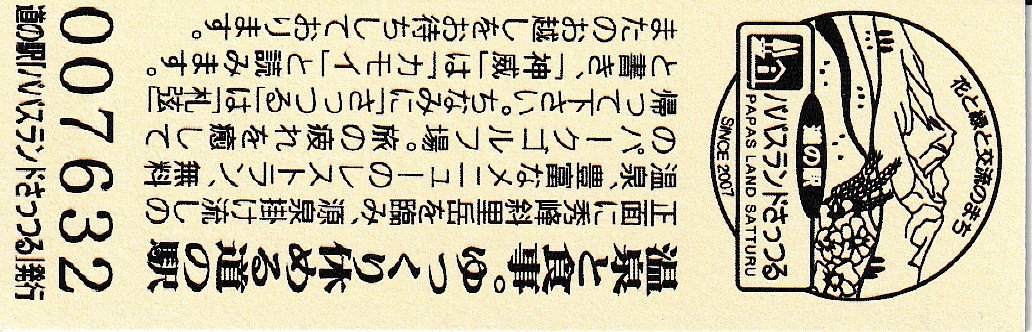 花と緑と交流のまち
道の駅
パパスランドさっつる
PAPAS LAND SATTURU
SINCE 2007
温泉と食事。ゆっくり休める道の駅
正面に秀峰斜里岳を臨み、源泉掛け流しの
温泉、豊富なメニューのレストラン、無料
のパークゴルフ場。旅の疲れを癒して
帰って下さい。ちなみに「さっつる」は「札弦」
と書き、「神威」は「カモイ」と読みます。
またのお越しをお待ちしております。
007632
道の駅「パパスランドさっつる」発行